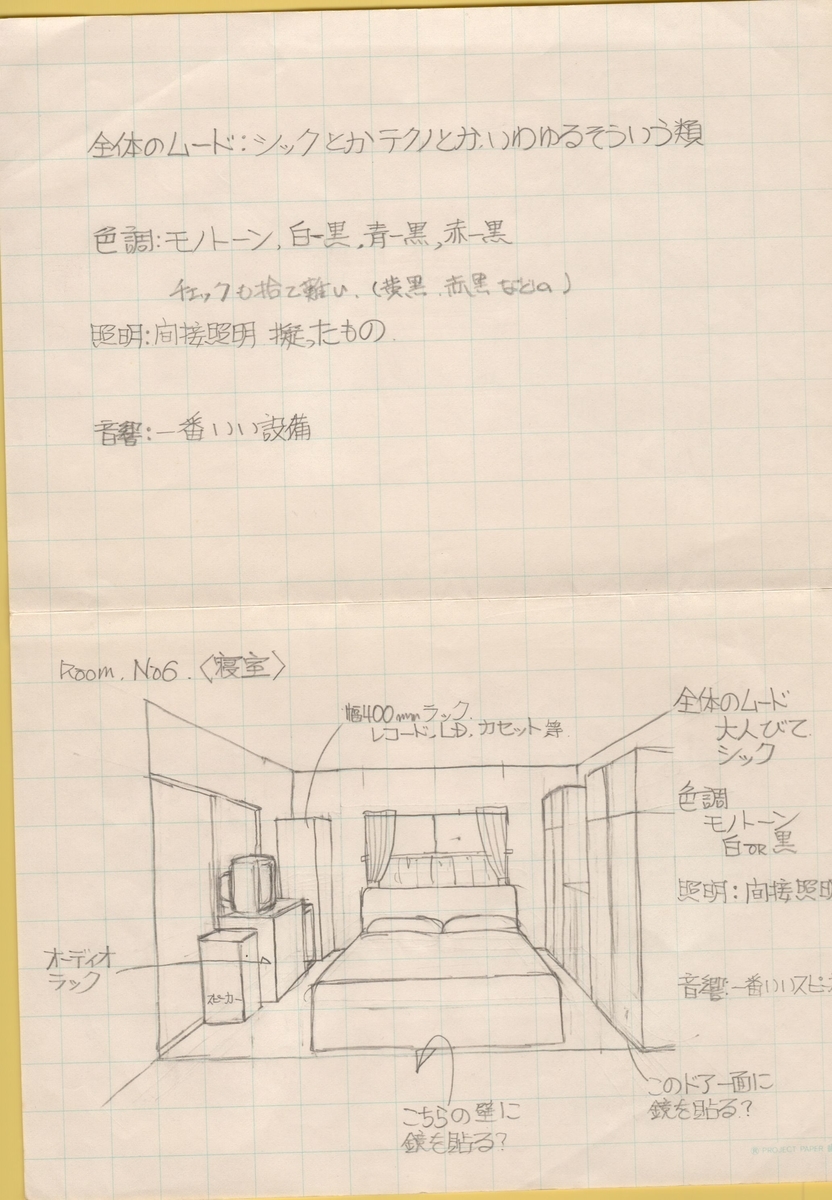 全体のムード:シックとかテクノとか、いわゆるそういう類
色調:モノトーン, 白ー黒, 青ー黒, 赤ー黒
チェックも捨て難い.(黄黒, 赤黒などの)
照明:間接照明 擬ったもの
音響:一番いい設備
Room. No6.〈寝室〉
幅400mmラック.
レコード, LD, カセット等
全体のムード
大人びて
シック
色調
モノトーン
白OR黒
照明:間接照明
オーディオ
ラック
スピーカー
音響:一番いいスピー
このドア一面に
鏡を貼る?
こちらの壁に
鏡を貼る?
PROJECT PAPER